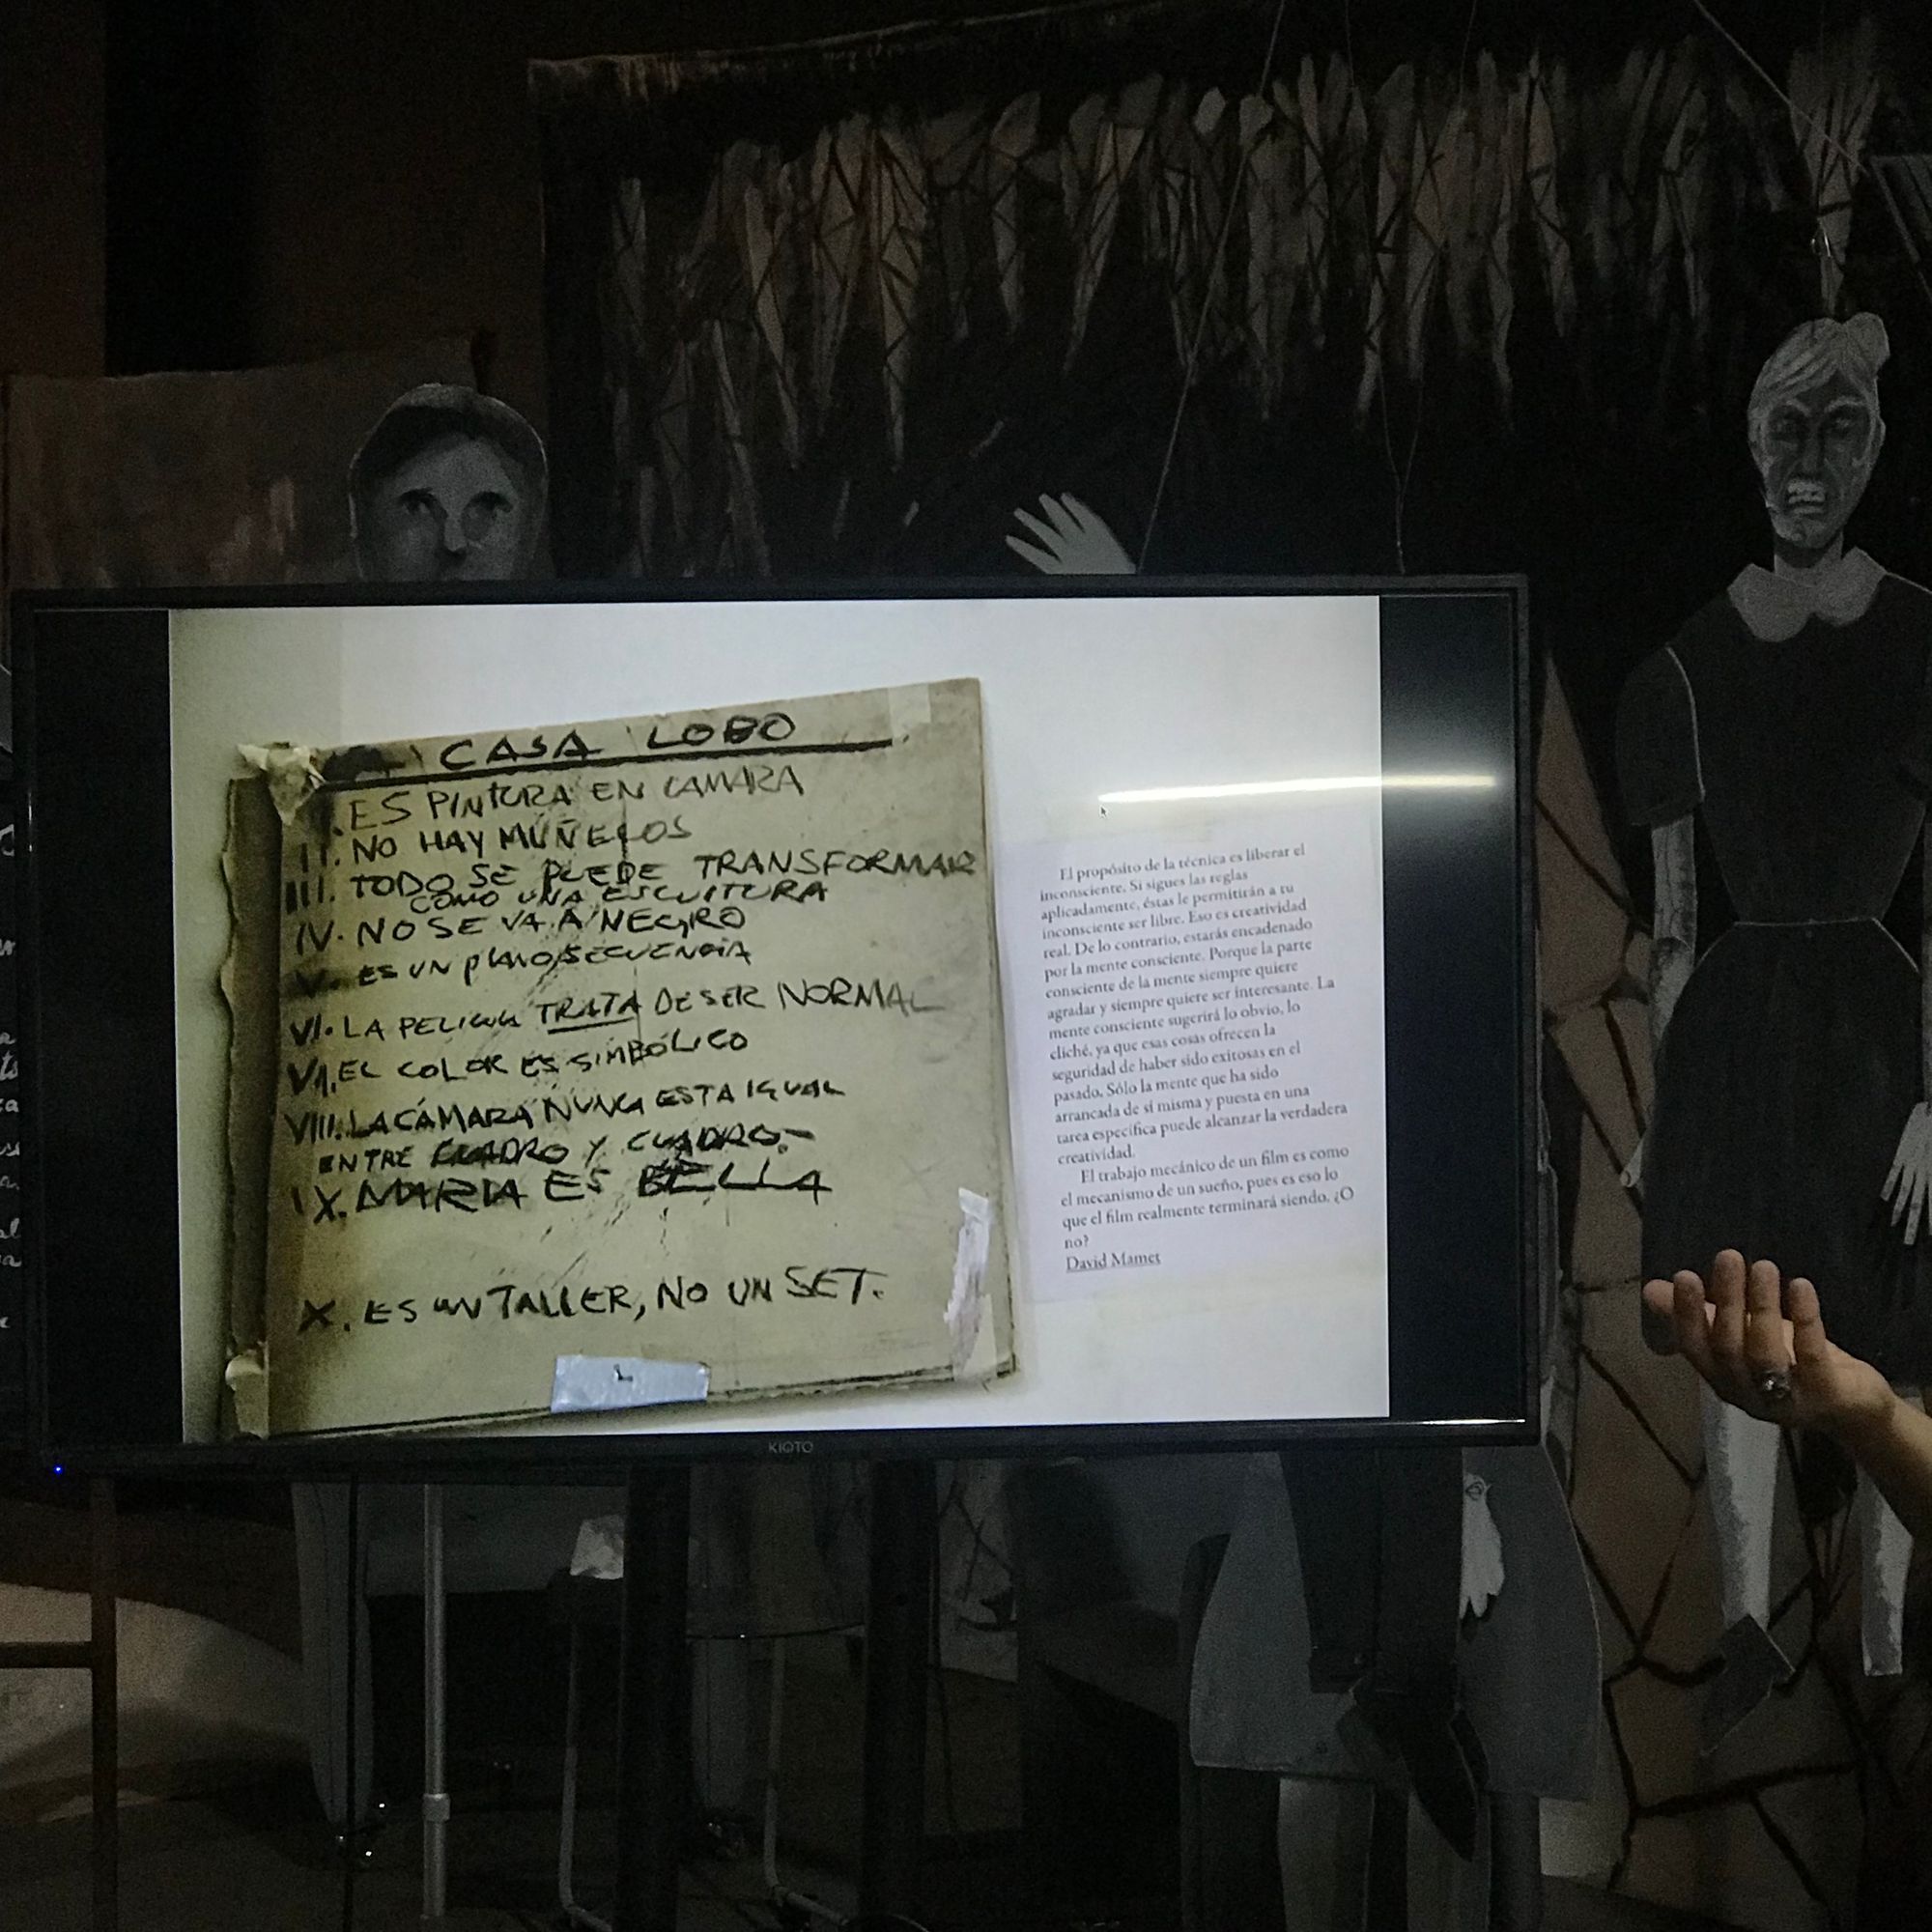 CASA LOBO
I. ES PINTURA EN CAMARA
II. NO HAY MUÑECOS
III. TODO SE PUEDE TRANSFORMAR
COMO UNA ESCULTURA
IV. NO SE VA A NEGRO
V. ES UN PLANO SECUENCIA
VI. LA PELICULA TRATA DE SER NORMAL
VII. EL COLOR ES SIMBÓLICO
VIII. LA CÁMARA NUNCA ESTA IGUAL
ENTRE CUADRO Y CUADRO.-
IX. MARIA ES BELLA
X. ES UN TALLER, NO UN SET.
El propósito de la técnica es liberar el
inconsciente. Si sigues las reglas
aplicadamente, éstas le permitirán a tu
inconsciente ser libre. Eso es creatividad
real. De lo contrario, estarás encadenado
por la mente consciente. Porque la parte
consciente de la mente siempre quiere
agradar y siempre quiere ser interesante. La
mente consciente sugerirá lo obvio, lo
cliché, ya que esas cosas ofrecen la
seguridad de haber sido exitosas en el
pasado. Sólo la mente que ha sido
arrancada de sí misma y puesta en una
tarea específica puede alcanzar la verdadera
creatividad.
El trabajo mecánico de un film es como
el mecanismo de un sueño, pues es eso lo
que el film realmente terminará siendo. ¿O
no?
David Mamet
KIOTO